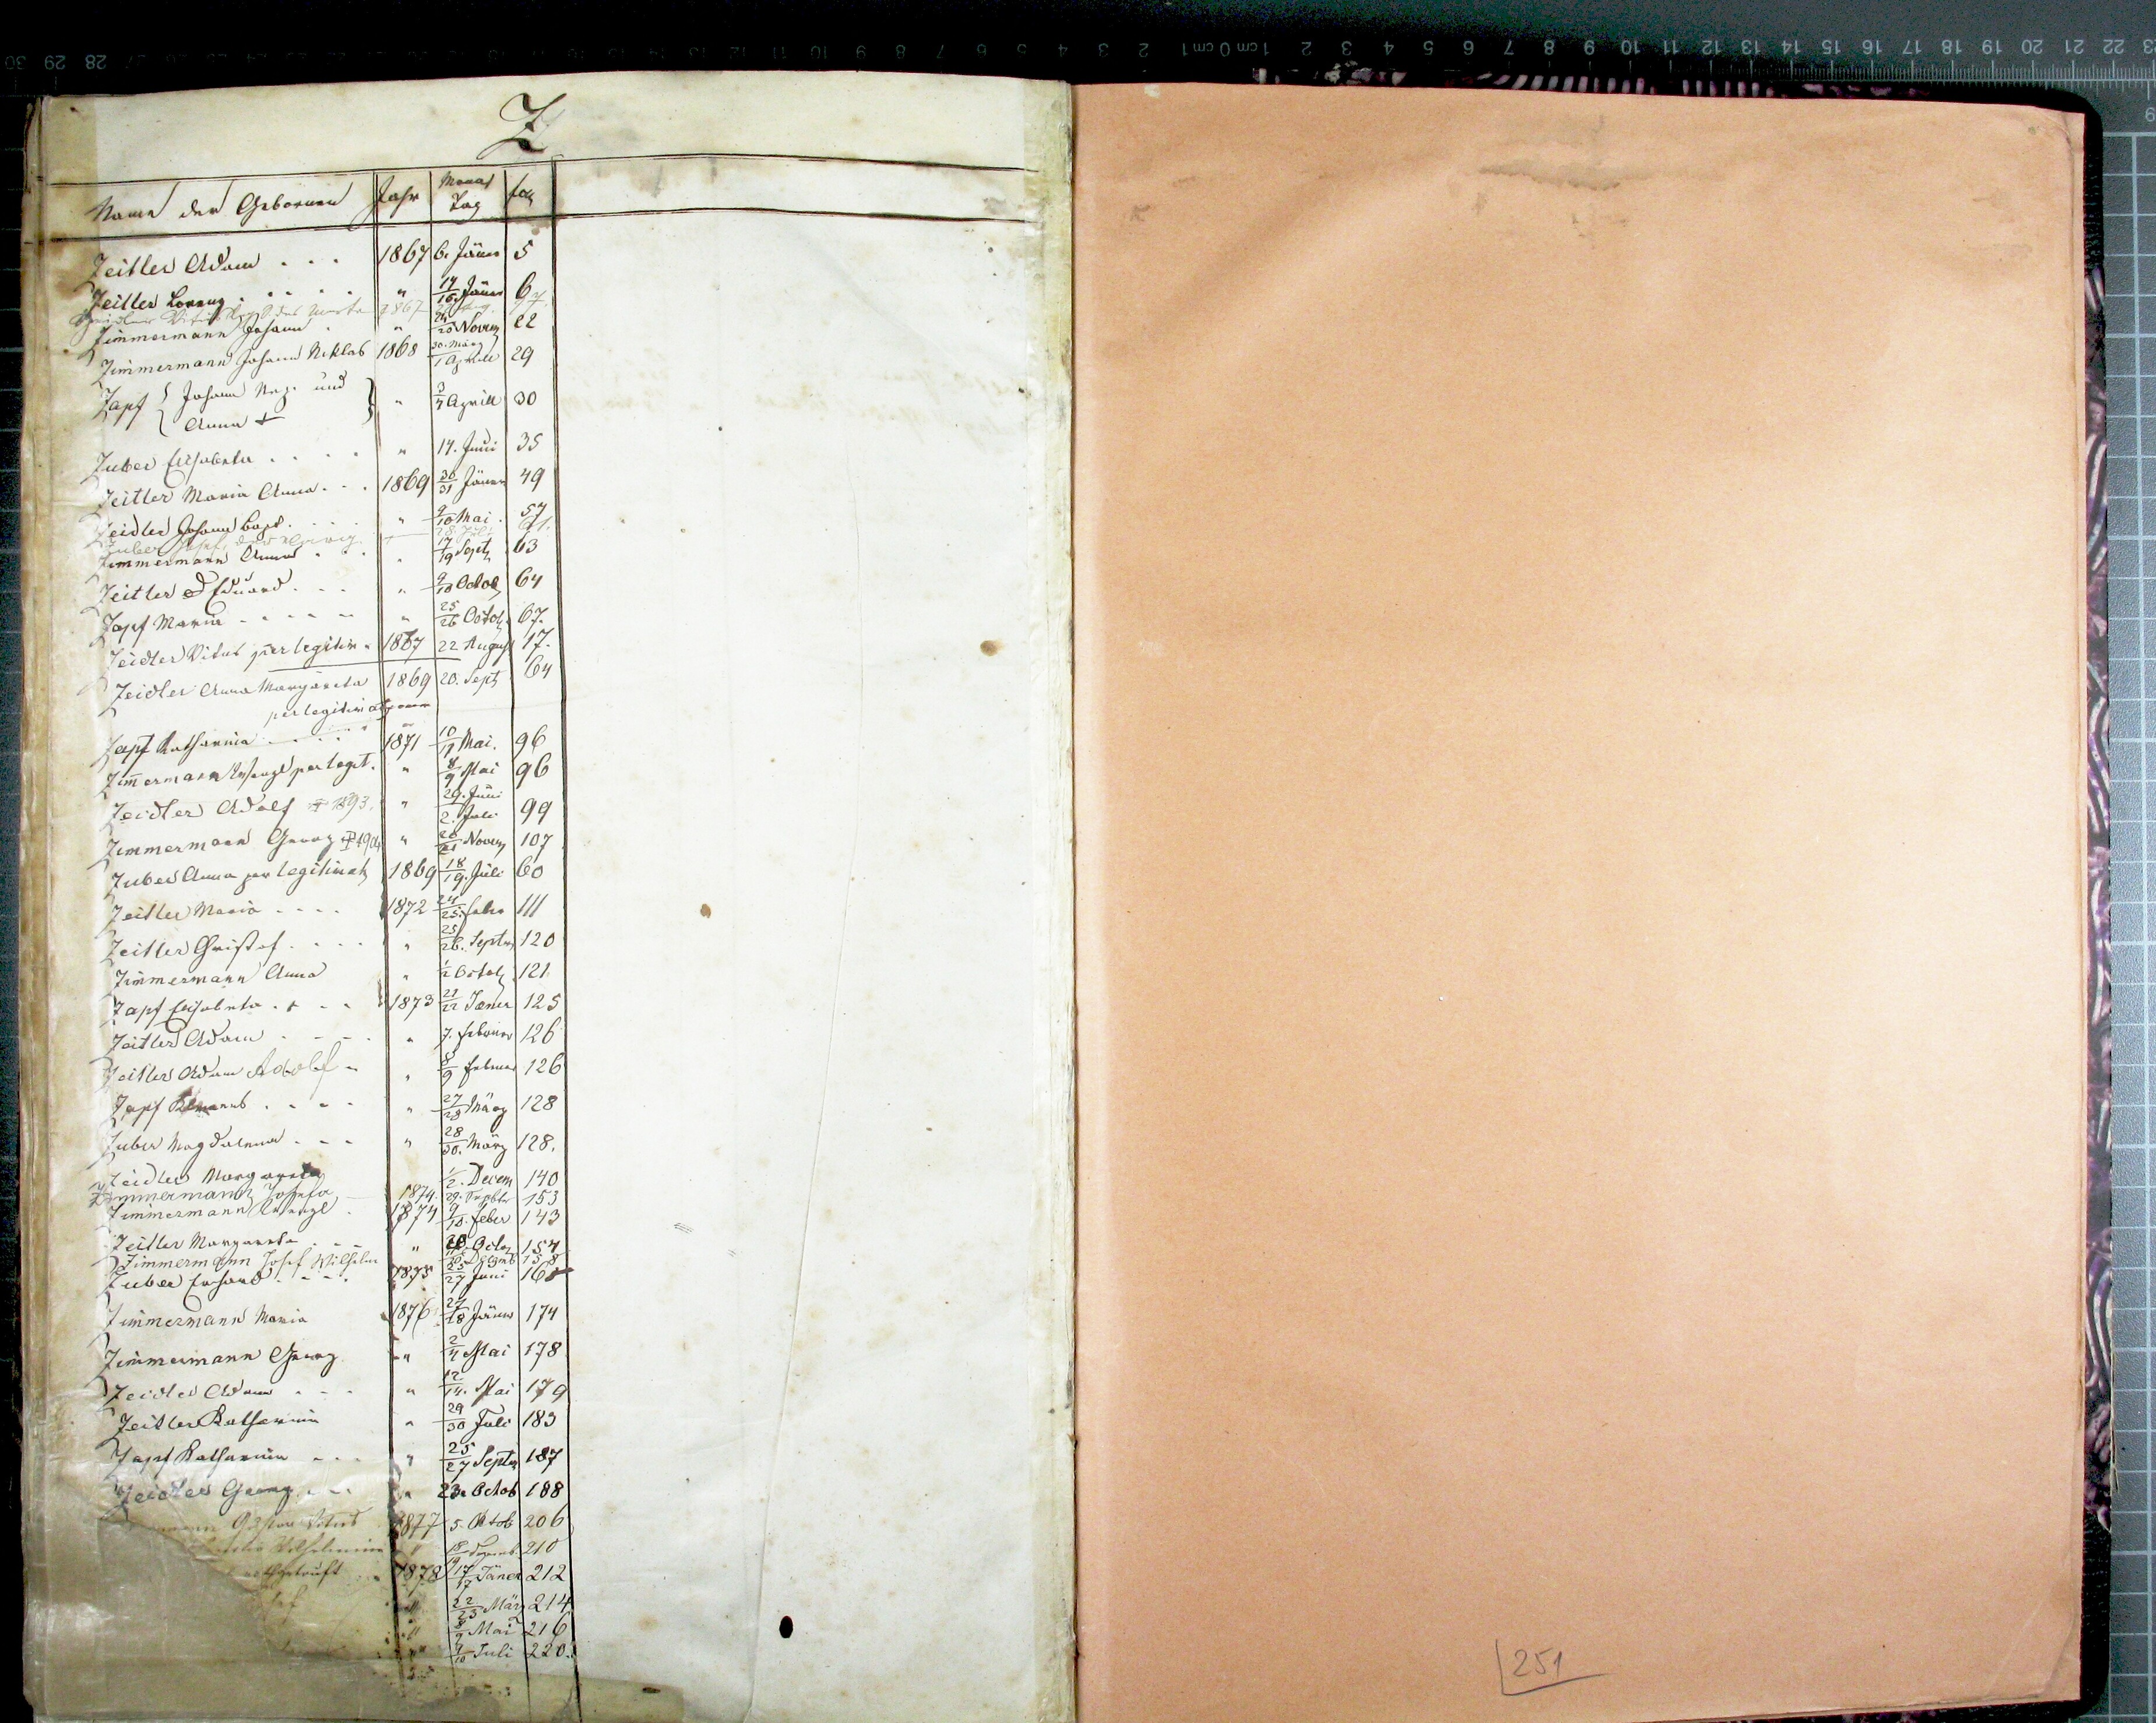 Z
Name der Gebornen Jahr Monat Tag fol
Zeitler Adam . . . 1867 6. Jäner 5
Zeitler Lorenz . . . . . " 14/16 Jäner 6
Zeidler Vitus 1867 22 Aug. 17.
Zimmermann Johann . " 24/25 Novem 22
Zimmermann Johann Niklas 1868 30. März/1 Aprill 29
Zapf { Johann Nep. und } " 3/4 Aprill 30
Anna +
Zuber Elisabeta . . . . " 14. Juni 35
Zeitler Maria Anna . . . 1869 30/31 Jäner 49
Zeidler Johann Bapt. . . . " 9/10 Mai . 57
Zuber Josef, 28. Juli 61.
Zimmermann Anna . . . " 17/19 Septb 63
Zeitler Eduard . . . " 9/10 Octob 64
Zapf Maria - - - - - " 25/26 Octob. 67.
Zeidler Vitus per legitim. 1867 22 August 17.
Zeidler Anna Margareta 1869 20. Sept 64
per legitimationem
Zapf Katharina . . . . 1871 10/11 Mai. 96
Zimmermann Wenzl per legit. " 8/9 Mai 96
Zeidler Adolf + 1893. " 29. Juni/2. Juli 99
Zimmermann Georg " 20/21 Novem 107
Zuber Anna per legitimat 1869 18/19. Juli 60
Zeitler Maria . . . . 1872 24/25. Febr 111
Zeitler Christof . . . . " 25/26. Septem 120
Zimmermann Anna " 1/2 Octob 121
Zapf Elisabeta . + - - 1873 21/22 Jæner 125
Zeitler Adam - - - . " 7. Februar 126
Zeitler Adam Adolf - " 8/9 Februar 126
Zapf . - - - " 27/28 März 128
Zuber Magdalena . - - " 28/30. März 128.
Zeidler Margareta 1/2. Decem 140
Zimmermann Josefa 1874. 29. Septbr 153
Zimmermann Wenzl . 1874 9/10. Feber 143
Zeitler Margareta . . . " Octob 154
Zimmermann Josef Wilhelm 158
Zuber Erhard - - - . 1875 25/27 Juni 168
Zimmermann Maria 1876 27/28 Jäner 174
Zimmermann Georg " 2/4 Mai 178
Zeidler Adam - - - " 12/14. Mai 179
Zeitler Katharina " 29/30 Juli 183
Zapf Katharina - - - " 25/27 Septem 187
Zeidler Georg . - - " 23. Octob 188
Gustav Vitus 1877 5. Oktob 206
Wilhelmine " 18/19 Dezemb. 210
nothgetauft . . 1878 17/17 Jäner 212
" 22/25 März 214
" 8/9 Mai 216
" 9/10 Juli 220.
251